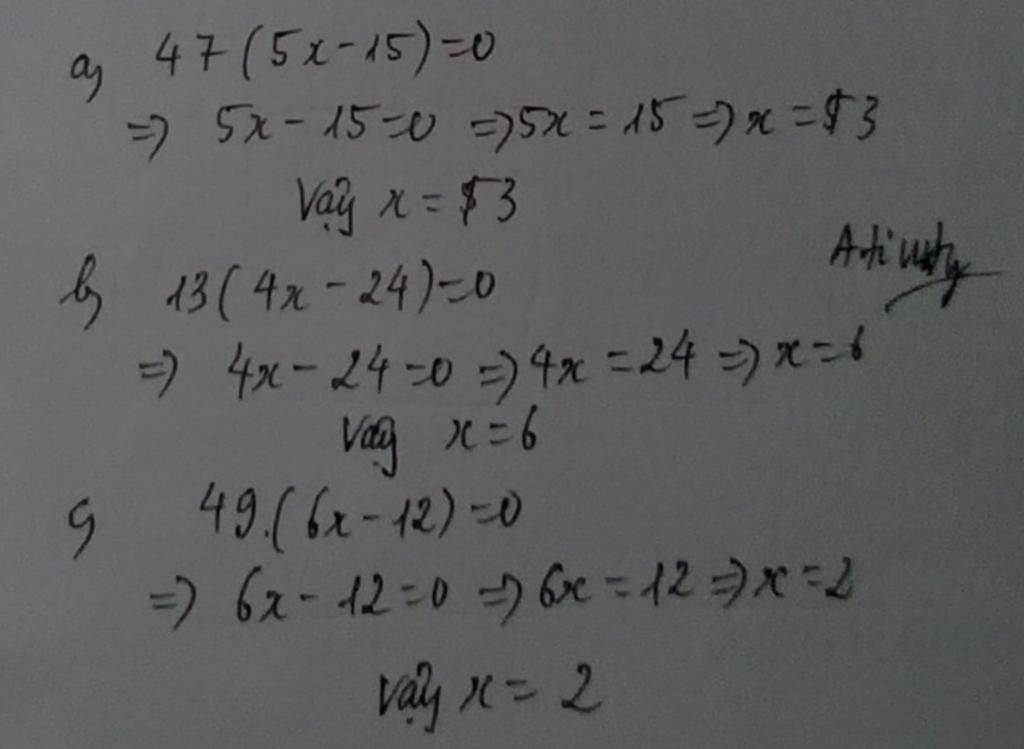 a) 47(5x-15)=0
=> 5x-15=0 =>5x=15=>x=3
Vậy x=3
b) 13(4x-24)=0
=> 4x-24=0 =>4x=24=>x=6
Vậy x=6
c) 49.(6x-12)=0
=> 6x-12=0 =>6x=12=>x=2
Vậy x=2